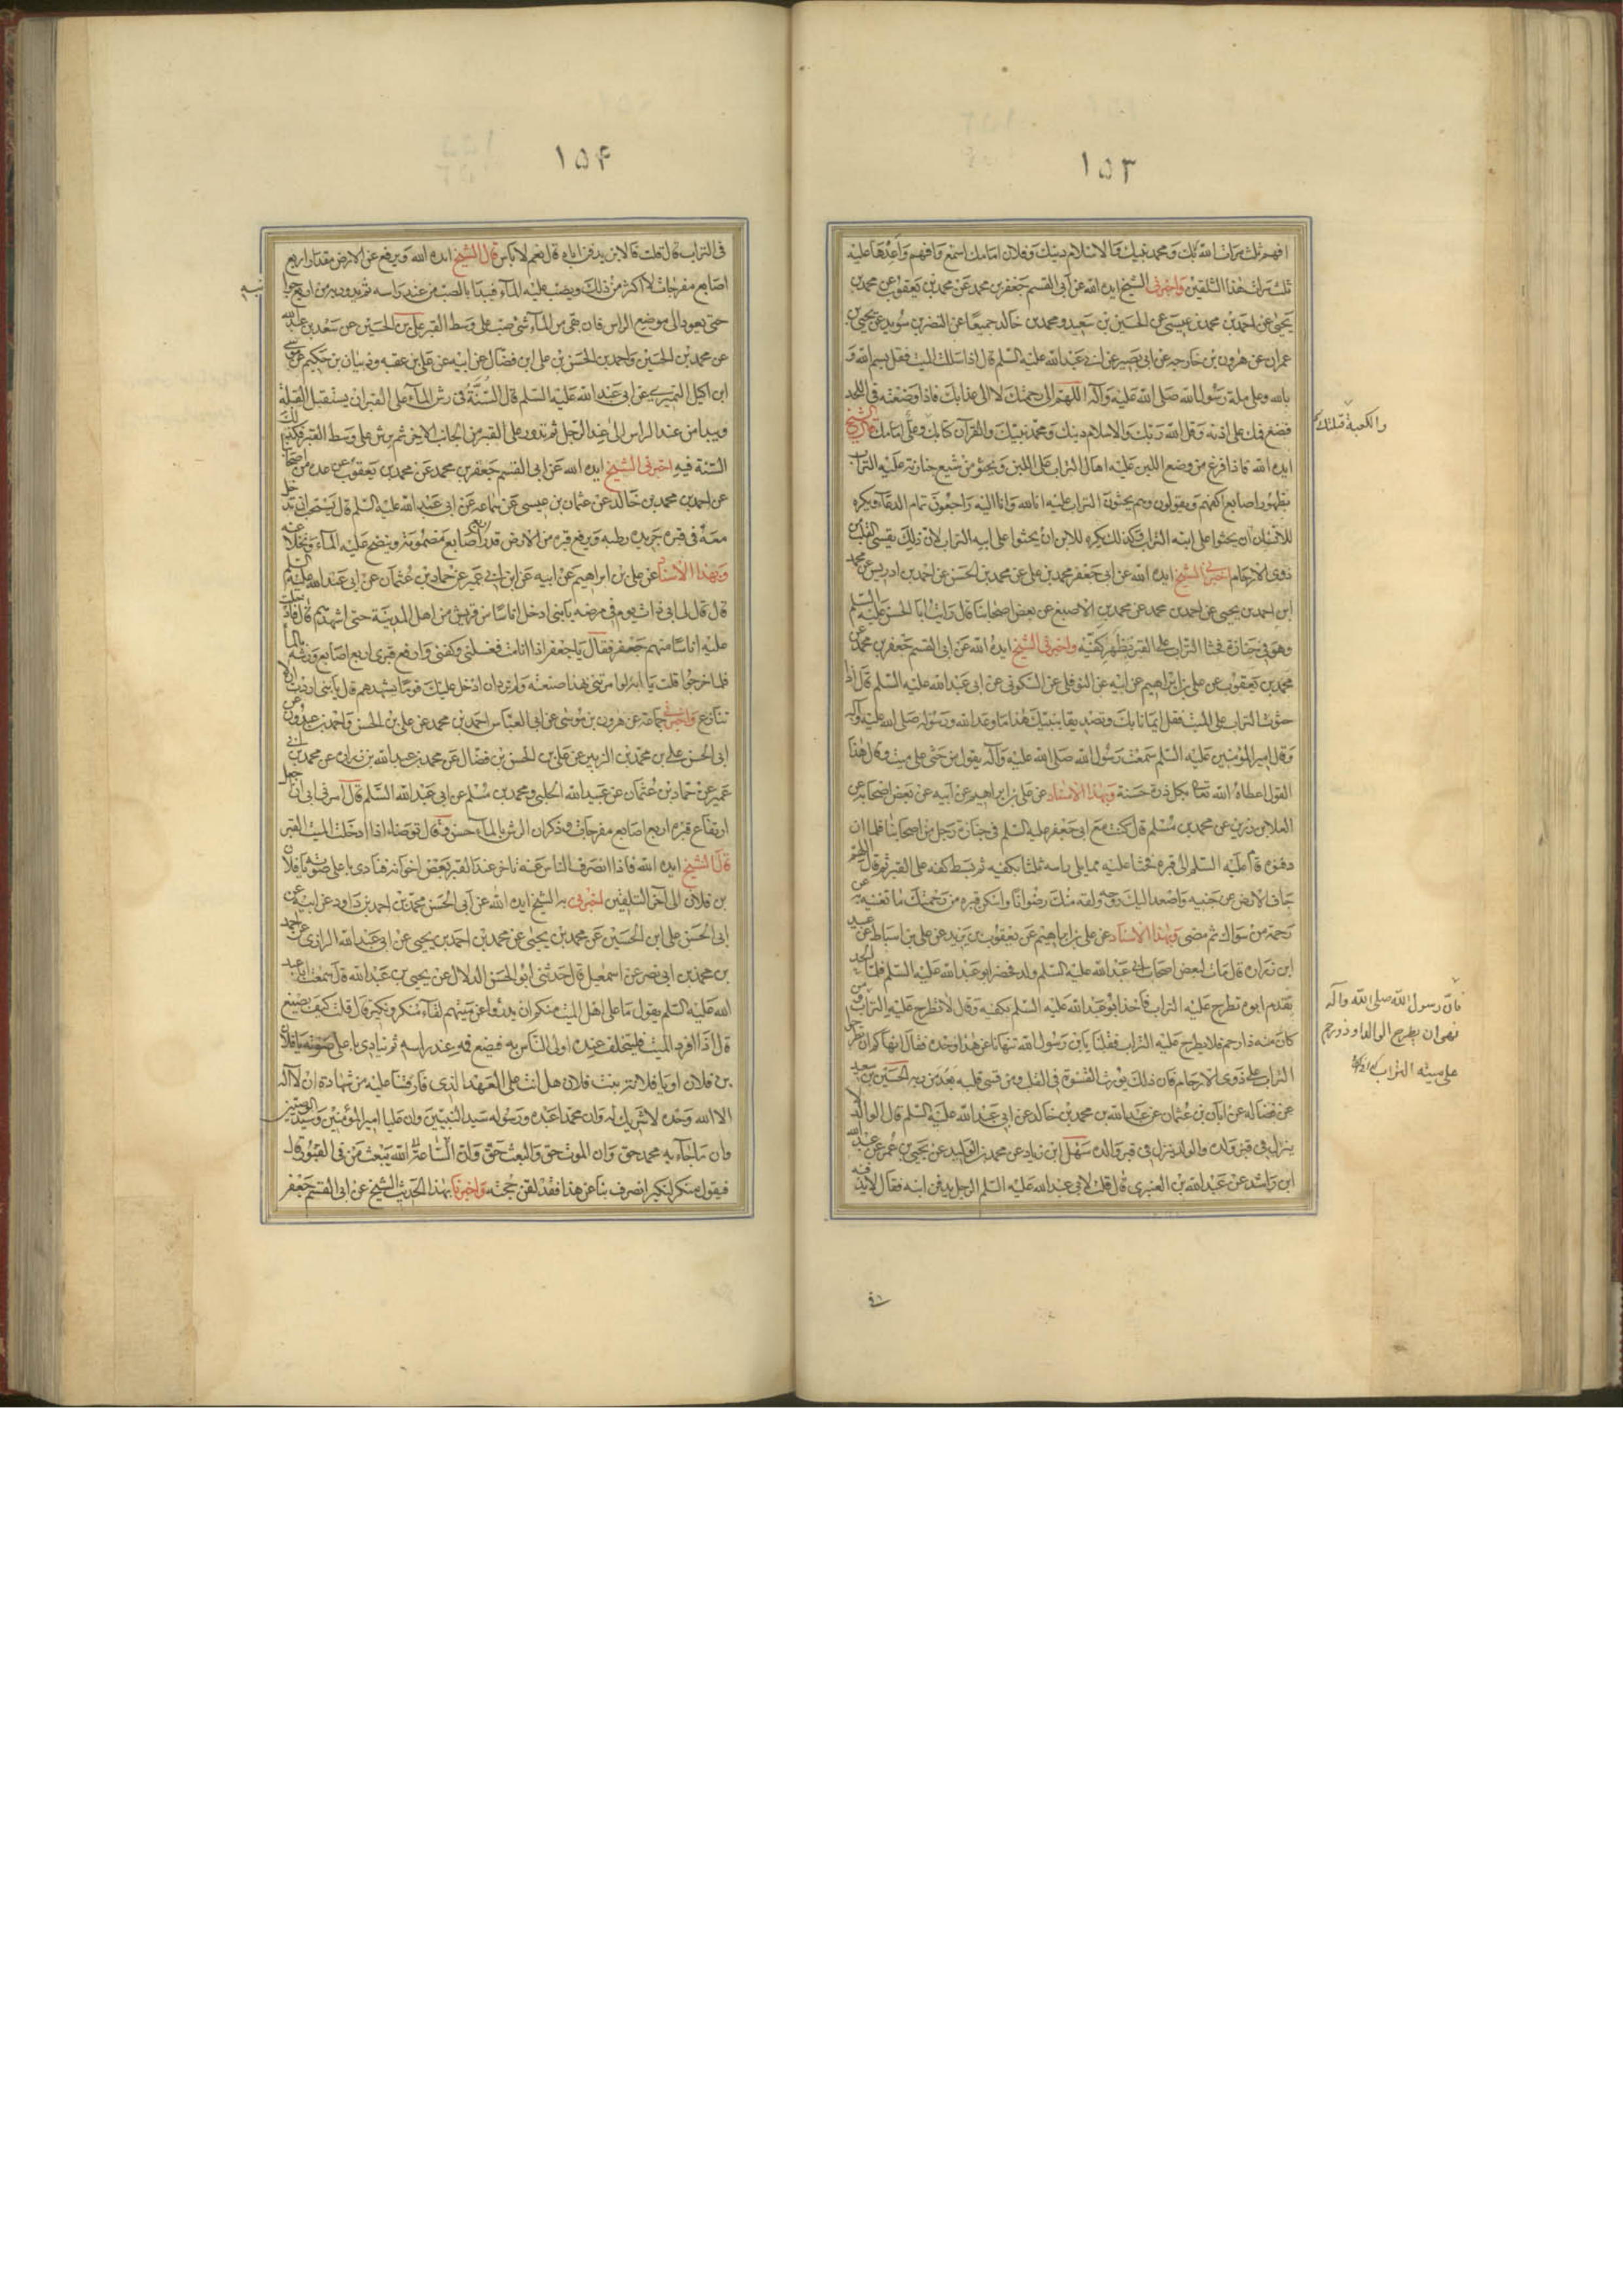 ١٥٣
افهم ثلث مرات الله ربك ومحمد نبيك والاسلام دينك وفلان امامك اسمع وافهم واعدها عليه
ثلث مرات هذا التلقين واخبرنى الشيخ ايده الله عن ابى القسم جعفر بن محمد عن محمد بن يعقوب عن محمد بن
يحيى عن احمد بن محمد بن عيسى عن الحسين بن سعيد ومحمد بن خالد جميعا عن النضر بن سويد عن يحيى بن
عمران عن هرون بن خارجه عن ابى بصير عن ابى عبد الله عليه السلم قال اذا سللت الميت فقل بسم الله و
بالله وعلى ملة رسول الله صلى الله عليه وآله اللهم الى رحمتك لا الى عذابك فاذا وضعته فى اللحد
فضع فمك على اذنه وقل الله ربك والاسلام دينك ومحمد نبيك والقرآن كتابك وعلى امامك قال الشيخ
والكعبة قبلتك
ايده الله فاذا فرغ من وضع اللبن عليه اهال التراب على اللبن ويحثو من شيع جنازته عليه التراب
بظهور اصابع اكفهم ويقولون وهم يحثون التراب عليه انا لله وانا اليه راجعون تمام الدعاء ويكره
للانسان ان يحثوا على ابنه التراب وكذلك يكره للابن ان يحثوا على ابيه التراب لان ذلك يقسى القلب من
ذوى الارحام اخبرنى الشيخ ايده الله عن ابى جعفر محمد بن على عن محمد بن الحسن عن احمد بن ادريس عن محمد
ابن احمد بن يحيى عن احمد بن محمد عن محمد بن الاصبغ عن بعض اصحابنا قال رايت ابا الحسن عليه السلم
وهو فى جنازة فحثا التراب على القبر بظهر كفيه واخبرنى الشيخ ايده الله عن ابى القسم جعفر بن محمد عن
محمد بن يعقوب عن على بن ابراهيم عن ابيه عن النوفلى عن السكونى عن ابى عبد الله عليه السلم قال اذا
حثوت التراب على الميت فقل ايمانا بك وتصديقا بنبيك هذا ما وعد الله ورسوله صلى الله عليه وآله
وقال امير المؤمنين عليه السلم سمعت رسول الله صلى الله عليه وآله يقول من حثى على ميت وقال هذا
القول اعطاه الله تعا بكل ذرة حسنة وبهذا الاسناد عن على بن ابراهيم عن ابيه عن بعض اصحابه عن
العلا بن رزين عن محمد بن مسلم قال كنت مع ابى جعفر عليه السلم فى جنازة رجل من اصحابنا فلما ان
دفنوه قام عليه السلم الى قبره فحثا عليه مما يلى راسه ثلثا بكفيه ثم بسط كفه على القبر ثم قال اللهم
جاف الارض عن جنبيه واصعد اليك روحه ولقه منك رضوانا واسكن قبره من رحمتك ما تغنيه به عن
رحمة من سواك ثم مضى وبهذا الاسناد عن على بن ابراهيم عن يعقوب بن يزيد عن على بن اسباط عن عبيد
ابن زرارة قال مات لبعض اصحاب ابى عبد الله عليه السلم ولد فحضر ابو عبد الله عليه السلم فلما الحد
يقدم ابوه تطرح عليه التراب فاخذ ابو عبد الله عليه السلم بكفيه وقال لا تطرح عليه التراب ومن
فان رسول الله صلى الله وآله
نهى ان يطرح الوالد او ذو رحم
على ميته التراب
كان منه ذا رحم فلا يطرح عليه التراب فقلنا يابن رسول الله تنهانا عن هذا وحده فقال انهاكم ان تطرحوا
التراب على ذوى الارحام فان ذلك يورث القسوة فى القلب ومن قسى قلبه بعد من ربه الحسين بن سعيد
عن فضاله عن ابان بن عثمان عن عبد الله بن محمد بن خالد عن ابى عبد الله عليه السلم قال الوالد لا
ينزل فى قبر ولده والولد ينزل فى قبر والده سهل ابن زياد عن محمد بن الوليد عن يحيى بن عمر عن عبد الله
ابن راشد عن عبد الله بن العنبرى قال قلت لابى عبد الله عليه السلم الرجل يدفن ابنه فقال لا يدفنه
فى
١٥۴
فى التراب قال قلت فالابن يدفن اباه قال نعم لا باس قال الشيخ ايده الله ويرفع عن الارض مقدار اربع
اصابع مفرجات لا اكثر من ذلك ويصب عليه الماء فيبدا بالصب من عند راسه ثم يدور به من اربع جوانبه
حتى يعود الى موضع الراس فان بقى من الماء شئ صب على وسط القبر على بن الحسين عن سعد بن عبد الله
عن محمد بن الحسين واحمد بن الحسن بن على ابن فضال عن ابيه عن على بن عقبه وذبيان بن حكيم عن موسى
ابن اكيل النميرى عن ابى عبد الله عليه السلم قال السنة فى رش الماء على القبر ان يستقبل القبلة
ويبدا من عند الراس الى عند الرجل ثم تدور على القبر من الجانب الاخر ثم يرش على وسط القبر فكذلك
السنة فيه اخبرنى الشيخ ايده الله عن ابى القسم جعفر بن محمد عن محمد بن يعقوب عن عدة من اصحابنا
عن احمد بن محمد بن خالد عن عثمان بن عيسى عن سماعة عن ابى عبد الله عليه السلم قال يستحب ان تدخل
معه فى قبره جريده رطبه ويرفع قبره من الارض قدر اربع اصابع مضمومة وينضح عليه الماء ويخلا عنه
وبهذا الاسناد عن على بن ابراهيم عن ابيه عن ابن ابى عمير عن حماد بن عثمان عن ابى عبد الله عليه السلم
قال قال لى ابى ذات يوم فى مرضه يا بنى ادخل اناسا من قريش من اهل المدينة حتى اشهدهم قال فادخلت
عليه اناسا منهم جعفر فقال يا جعفر اذا انا مت فغسلنى وكفنى وارفع قبرى اربع اصابع ورشه بالماء
فلما خرجوا قلت يا ابة لو امرتنى بهذا صنعته ولم ترد ان ادخل عليك قوما تشهدهم قال يا بنى اردت ان لا
تنازع واخبرنى جماعة عن هرون بن موسى عن ابى العباس احمد بن محمد عن على بن الحسن واحمد بن عبدون عن
ابى الحسن على بن محمد بن الزبير عن على بن الحسن بن فضال عن محمد بن عبد الله بن زرارة عن محمد بن ابى
عمير عن حماد بن عثمان عن عبيد الله الحلبى ومحمد بن مسلم عن ابى عبد الله السلم قال امرنى ابى ان اجعل
ارتفاع قبره اربع اصابع مفرجات وذكر ان الرش بالماء حسن وقال توضا اذا ادخلت الميت القبر
قال الشيخ ايده الله فاذا انصرف الناس عنه تاخر عند القبر بعض اخوانه فنادى باعلى صوته يا فلان
بن فلان الى آخر التلقين اخبرنى به الشيخ ايده الله عن ابى الحسن محمد بن احمد بن داود عن ابيه عن
ابى الحسن على ابن الحسين عن محمد بن يحيى عن محمد بن احمد بن يحيى عن ابى عبد الله الرازى عن احمد
بن محمد بن ابى نصر عن اسمعيل قال حدثنى ابو الحسن الدلال عن يحيى بن عبد الله قال سمعت ابا عبد
الله عليه السلم يقول ما على اهل الميت منكم ان يدرؤا عن ميتهم لقاء منكر ونكير قال قلت كيف يصنع
قال اذا افرد الميت فليتخلف عنده اولى الناس به فيضع فمه عند راسه ثم ينادى باعلى صوته يا فلان
بن فلان او يا فلانة بنت فلان هل انت على العهد الذى فارقتنا عليه من شهادة ان لا اله
الا الله وحده لا شريك له وان محمدا عبده ورسوله سيد النبيين وان عليا امير المؤمنين وسيد الوصيين
وان ما جاء به محمد حق وان الموت حق والبعث حق وان الساعة الله يبعث من فى القبور قال
فيقول منكر لنكير انصرف بنا عن هذا فقد لقن حجته واخبرنا بهذا الحديث الشيخ عن ابى القسم جعفر